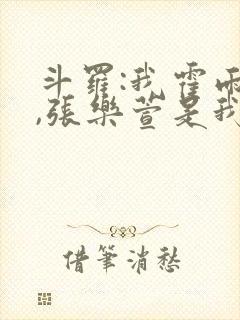 斗羅:我霍雨
,張樂萱是我
借筆消愁